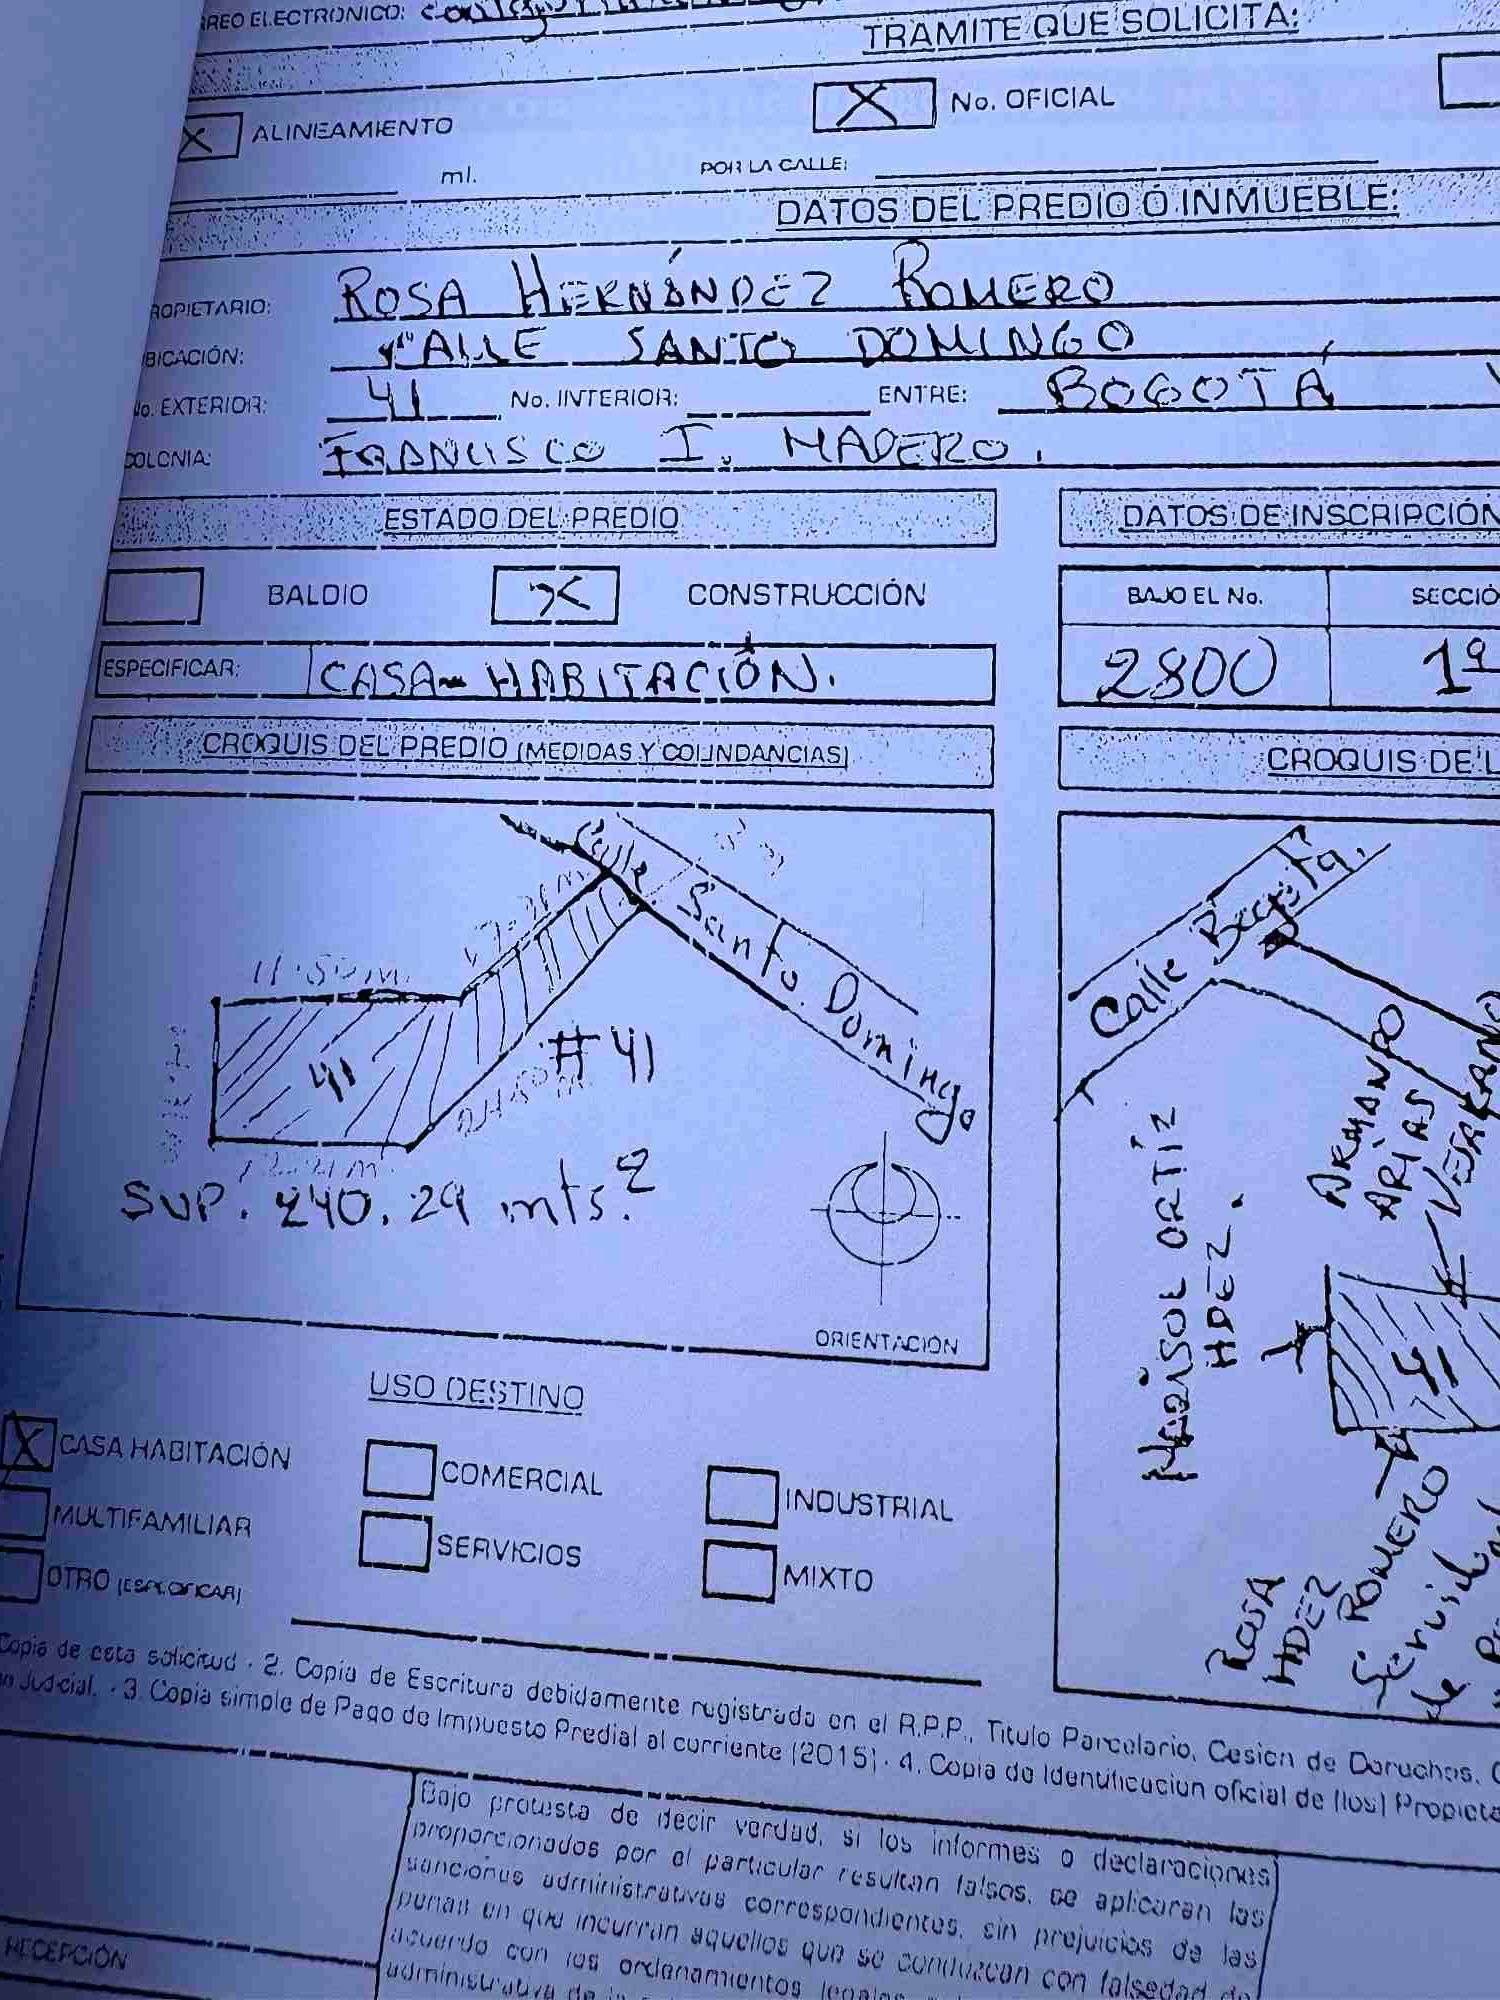 RREO ELECTRONICO:
TRAMITE QUE SOLICITA:
X ALINEAMIENTO
X No. OFICIAL
ml. POR LA CALLE:
DATOS DEL PREDIO Ó INMUEBLE:
ROPIETARIO: ROSA HERNÁNDEZ ROMERO
BICACIÓN: CALLE SANTO DOMINGO
No. EXTERIOR: 41 No. INTERIOR: ENTRE: BOGOTÁ
COLONIA: FRANCISCO I. MADERO.
ESTADO DEL PREDIO
BALDIO X CONSTRUCCIÓN
ESPECIFICAR: CASA-HABITACIÓN.
CROQUIS DEL PREDIO (MEDIDAS Y COLINDANCIAS)
Calle Santo Domingo
11.50 m.
41
#41
SUP. 240.29 mts.²
ORIENTACIÓN
DATOS DE INSCRIPCIÓN
BAJO EL No. SECCIÓ
2800 1ª
CROQUIS DE L
Calle Bogotá.
ARMANDO
ARIAS
MARISOL ORTÍZ
HDEZ.
41
ROSA
HDEZ
ROMERO
de
USO DESTINO
X CASA HABITACIÓN
COMERCIAL
INDUSTRIAL
MULTIFAMILIAR
SERVICIOS
MIXTO
OTRO (ESPECIFICAR)
Copia de esta solicitud - 2. Copia de Escritura debidamente registrada en el R.P.P., Titulo Parcelario, Cesion de Derechos,
n Judicial. - 3. Copia simple de Pago de Impuesto Predial al corriente (2015) - 4. Copia de Identificacion oficial de (los) Propieta
Bajo protesta de decir verdad, si los informes o declaraciones
proporcionados por el particular resultan falsos, se aplicaran las
sanciones administrativas correspondientes, sin prejuicios de las
penas en que incurran aquellos que se conduzcan con falsedad de
acuerdo con los ordenamientos legales
administrativa de
RECEPCIÓN